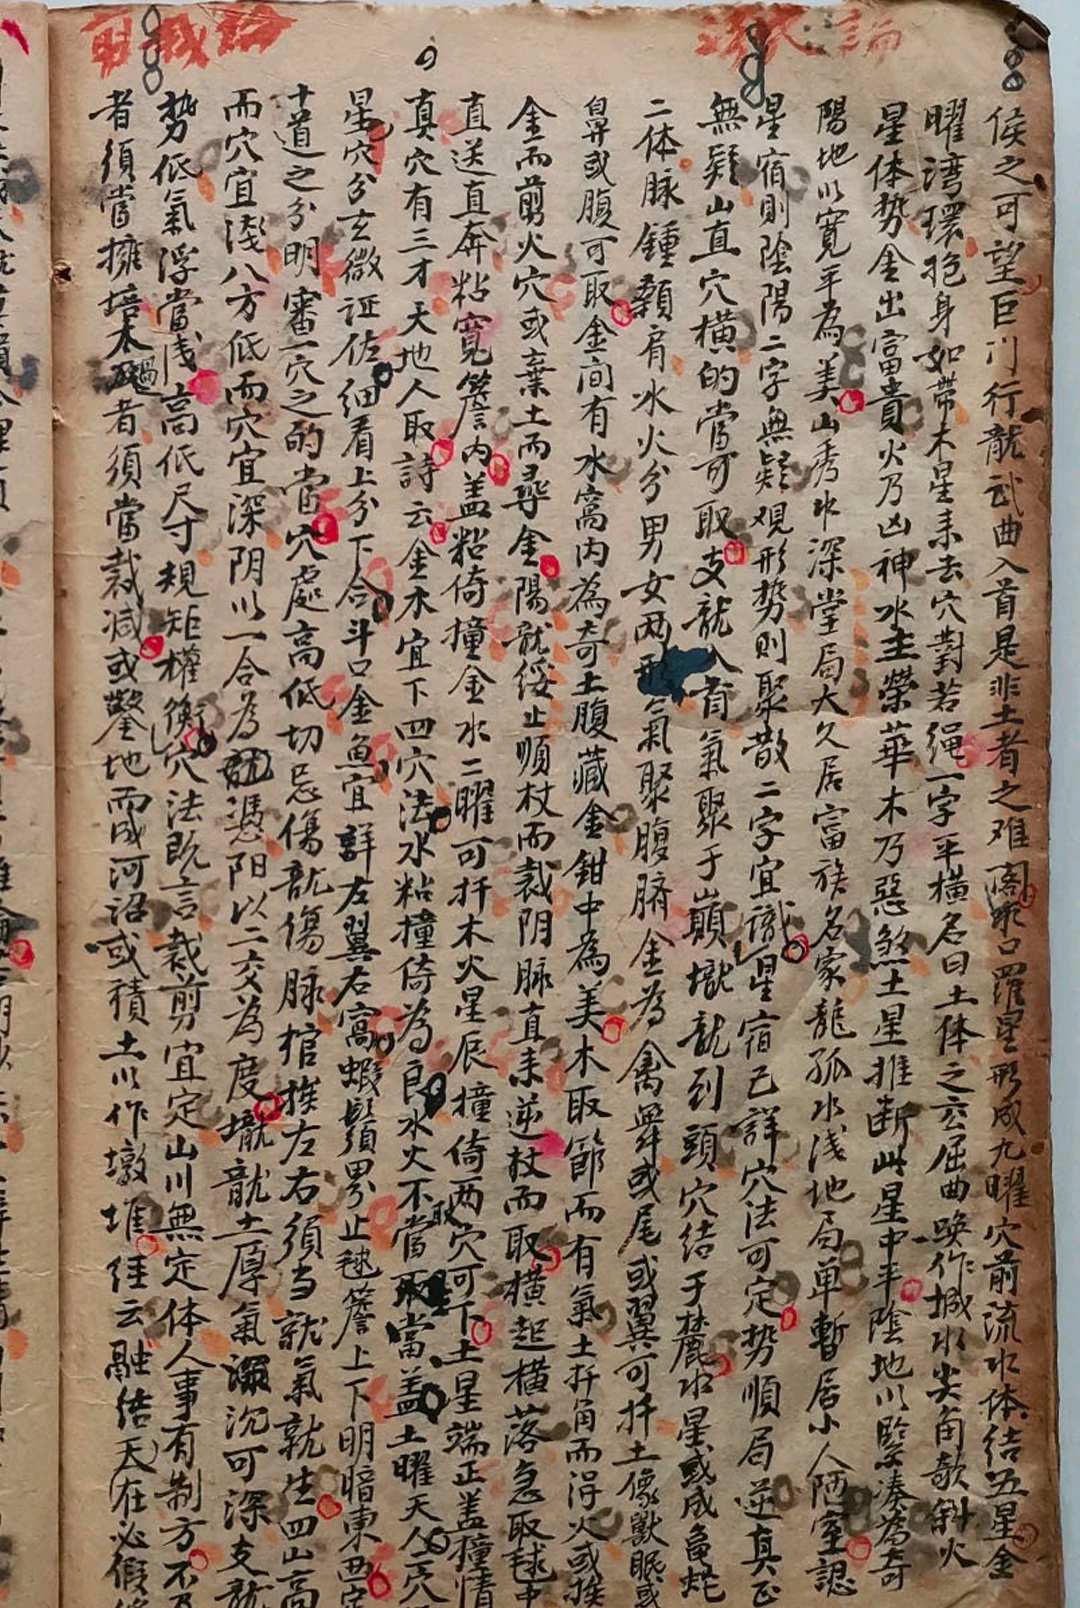 論
侯之可望巨门行龍武曲入首是非土者之难水口羅星形成九曜穴前流水体结五星金
曜湾環抱身如带木星来去穴對若绳一字平横名曰土体之玄屈曲唤作城水尖角欹斜火
星体势金出富貴火乃凶神水主榮華木乃惡煞土星推断此星中平陰地以緊凑為奇
陽地以寬平為美山秀水深堂局大久居富族名家龍孤水浅地局单暫居小人陋室認
星宿則陰陽二字無疑观形势則聚散二字宜識星宿已詳穴法可定势順局逆真正
無疑山直穴横的當可取支龍入首氣聚于巔壠龍到頭穴结于麓水星或成龜蛇
二体脉鍾額肩水火分男女两形氣聚腹臍金為禽舞或尾或翼可扦土像獸眠或
鼻或腹可取金间有水窩内為奇土腹藏金鉗中為美木取節而有氣土扦角而浔火或挨
金而剪火穴或棄土而尋金陽龍绥止順杖而裁阴脉直来逆杖而取横起横落急取毬中
直送直奔粘寬簷内盖粘倚撞金水二曜可扦木火星辰撞倚两穴可下土星端正盖撞情
真穴有三才天地人取詩云金木宜下四穴法水粘撞倚為良水火不當取當盖土曜天人穴
星穴分玄微证佐细看上分下合斗口金魚宜詳左翼右窩蝦鬚界止毬簷上下明暗東西定
十道之分明審一穴之的當穴處高低切忌傷龍傷脉棺挨左右须当就氣就生四山高
而穴宜淺八方低而穴宜深阴以一合為憑阳以二交為度壠龍土厚氣沉可深支龍
势低氣浮當浅高低尺寸規矩權衡穴法既言裁剪宜定山川無定体人事有制方不及
者須當擁培太過者須當裁减或鑿地而成河沼或積土以作墩堆经云融结天在必假修
裁論